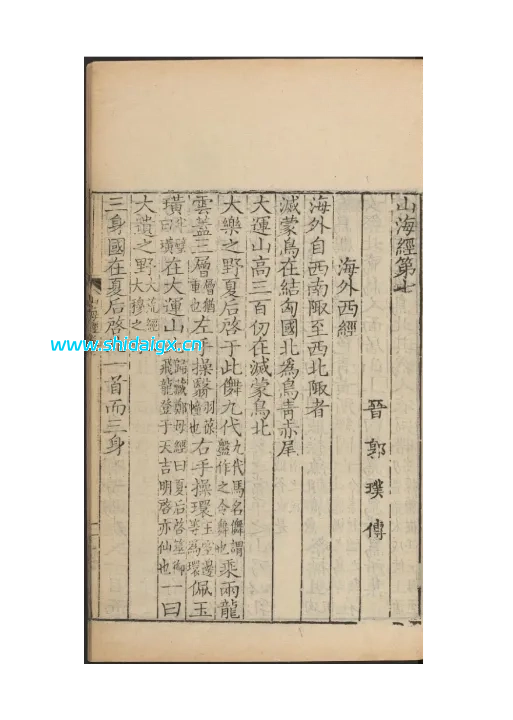 山海經第七
晉郭璞傳
海外西經
海外自西南陬至西北陬者
滅蒙鳥在結匈國北爲鳥青赤尾
大運山高三百仞在滅蒙鳥北
大樂之野夏后啓于此儛九代九代馬名儛謂盤作之令舞也乘兩龍
雲蓋三層層猶重也左手操翳羽葆幢也右手操環玉空邊等爲環佩玉
璜半璧曰璜在大運山歸藏鄭母經曰夏后啓筮御飛龍登于天吉明啓亦仙也一曰
大遺之野大荒經大穆之
三身國在夏后啓一首而三身
www.shidaigx.cn